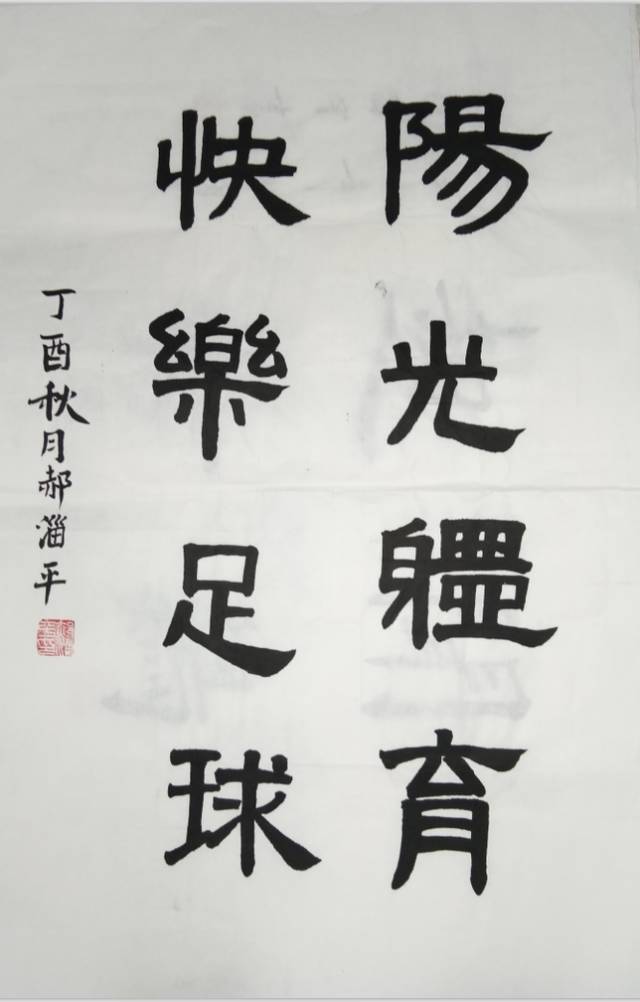 陽光軆育
快樂足球
丁酉秋月郝淄平